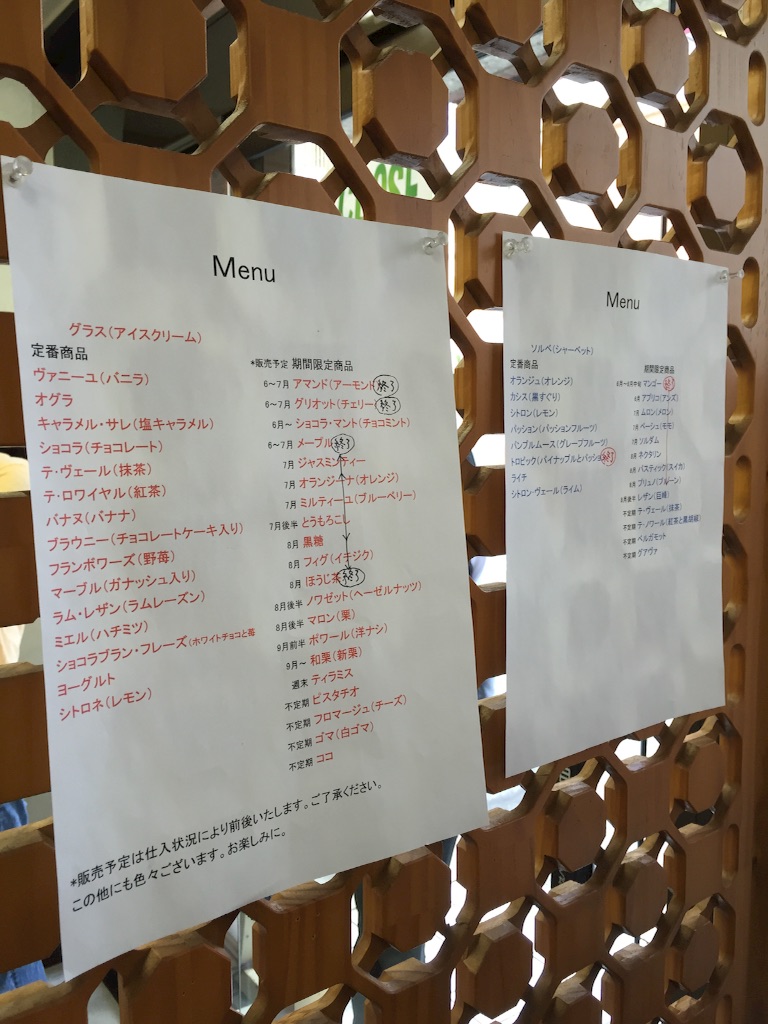 CLOSE
Menu
グラス(アイスクリーム)
定番商品
ヴァニーユ(バニラ)
オグラ
キャラメル・サレ(塩キャラメル)
ショコラ(チョコレート)
テ・ヴェール(抹茶)
テ・ロワイヤル(紅茶)
バナヌ(バナナ)
ブラウニー(チョコレートケーキ入り)
フランボワーズ(野苺)
マーブル(ガナッシュ入り)
ラム・レザン(ラムレーズン)
ミエル(ハチミツ)
ショコラブラン・フレーズ(ホワイトチョコと苺
ヨーグルト
シトロネ(レモン)
*販売予定 期間限定商品
6〜7月 アマンド(アーモンド 終了
6〜7月 グリオット(チェリー) 終了
6月〜 ショコラ・マント(チョコミント)
6〜7月 メープル 終了
7月 ジャスミンティー
7月 オランジーナ(オレンジ)
7月 ミルティーユ(ブルーベリー)
7月後半 とうもろこし
8月 黒糖
8月 フィグ(イチジク)
8月 ほうじ茶 終了
8月後半 ノワゼット(ヘーゼルナッツ)
8月後半 マロン(栗)
9月前半 ポワール(洋ナシ)
9月〜 和栗(新栗)
週末 ティラミス
不定期 ピスタチオ
不定期 フロマージュ(チーズ)
不定期 ゴマ(白ゴマ)
不定期 ココ
*販売予定は仕入状況により前後いたします。ご了承ください。
この他にも色々ございます。お楽しみに。
Menu
ソルベ(シャーベット)
定番商品
オランジュ(オレンジ)
カシス(黒すぐり)
シトロン(レモン)
パッション(パッションフルーツ)
パンプルムース(グレープフルーツ)
トロピック(パイナップルとパッション 終了
ライチ
シトロン・ヴェール(ライム)
期間限定商品
6月〜8月中旬 マンゴー 終了
6月 アブリコ(アンズ)
7月 ムロン(メロン)
7月 ペーシュ(モモ)
7月 ソルダム
8月 ネクタリン
8月 パスティック(スイカ)
8月 プリュノ(プルーン)
8月後半 レザン(巨峰)
不定期 テ・ヴェール(抹茶)
不定期 テ・ノワール(紅茶と黒胡椒)
不定期 ベルガモット
不定期 グアヴァ